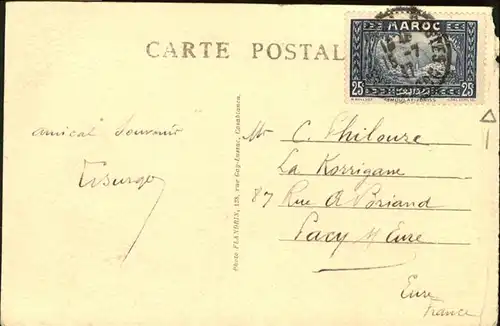 CARTE POSTALE
MAROC
25 25
amical souvenir
Mr C. Philouze
La Korrigane
87 Rue A Briand
Pacy s/ Eure
Eure
France
Photo FLANDRIN, 128, rue Guy-Juvenal, Casablanca.